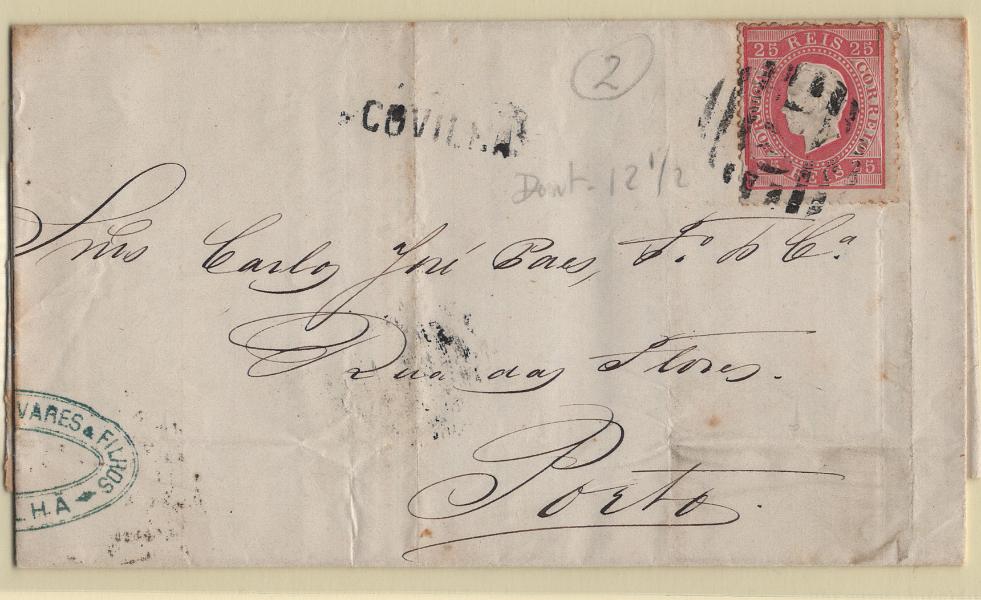 25 REIS 25
CORREIO
25 REIS 25
2
COVILHA
Dent. 12 1/2
Snrs Carlos José Paes, Fº & Cª
Rua das Flores.
Porto.
VARES & FILHOS
LHÃ